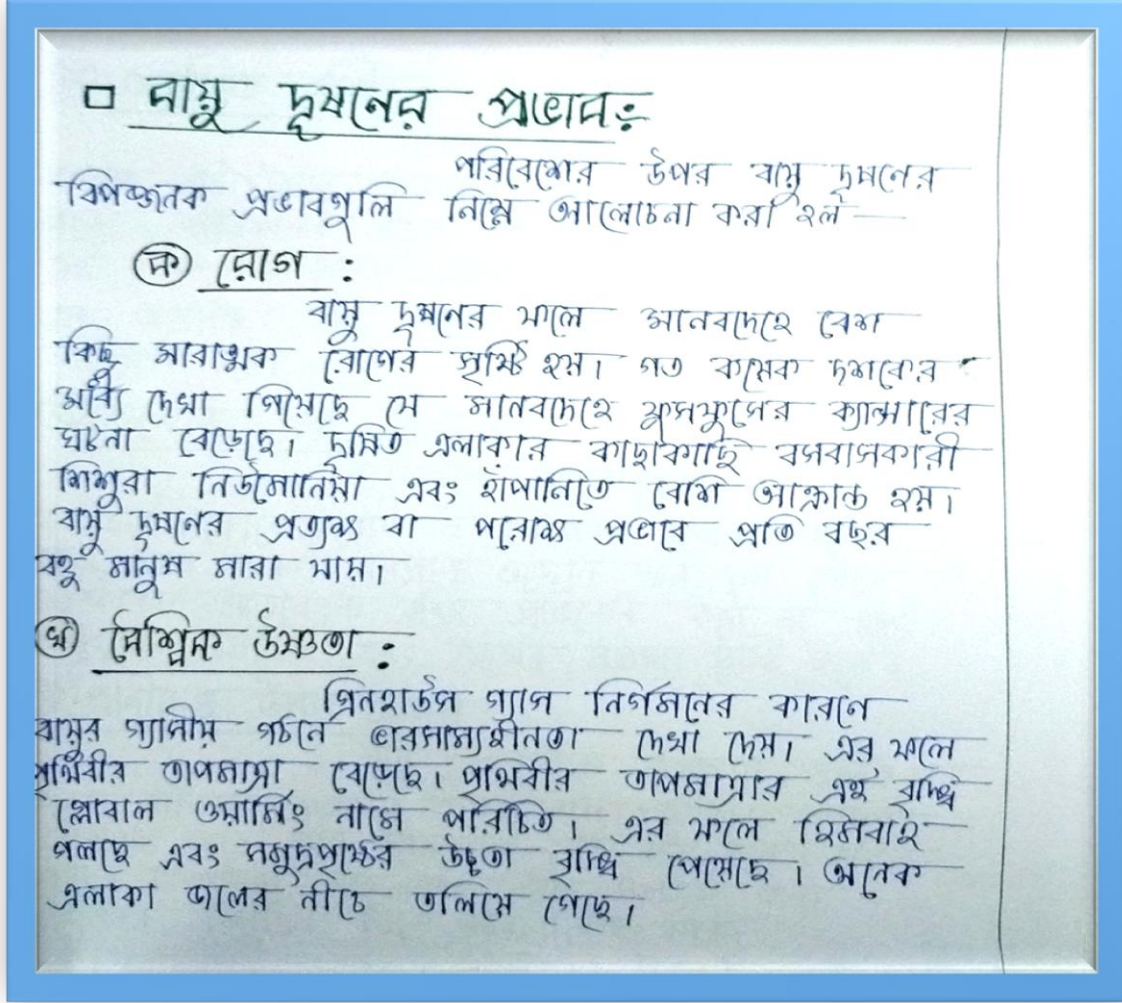 □ বায়ু দূষনের প্রভাব:
পরিবেশের উপর বায়ু দূষনের
বিপজ্জনক প্রভাবগুলি নিম্নে আলোচনা করা হল —
(ক) রোগ :
বায়ু দূষনের ফলে মানবদেহে বেশ
কিছু মারাত্মক রোগের সৃষ্টি হয়। গত কয়েক দশকের
মধ্যে দেখা গিয়েছে যে মানবদেহে ফুসফুসের ক্যান্সারের
ঘটনা বেড়েছে। দূষিত এলাকার কাছাকাছি বসবাসকারী
শিশুরা নিউমোনিয়া এবং হাঁপানিতে বেশি আক্রান্ত হয়।
বায়ু দূষনের প্রত্যক্ষ বা পরোক্ষ প্রভাবে প্রতি বছর
বহু মানুষ মারা যায়।
(খ) বৈশ্বিক উষ্ণতা :
গ্রিনহাউস গ্যাস নির্গমনের কারণে
বায়ুর গ্যাসীয় গঠনে ভারসাম্যহীনতা দেখা দেয়। এর ফলে
পৃথিবীর তাপমাত্রা বেড়েছে। পৃথিবীর তাপমাত্রার এই বৃদ্ধি
গ্লোবাল ওয়ার্মিং নামে পরিচিত। এর ফলে হিমবাহ
গলছে এবং সমুদ্রপৃষ্ঠের উচ্চতা বৃদ্ধি পেয়েছে। অনেক
এলাকা জলের নীচে তলিয়ে গেছে।